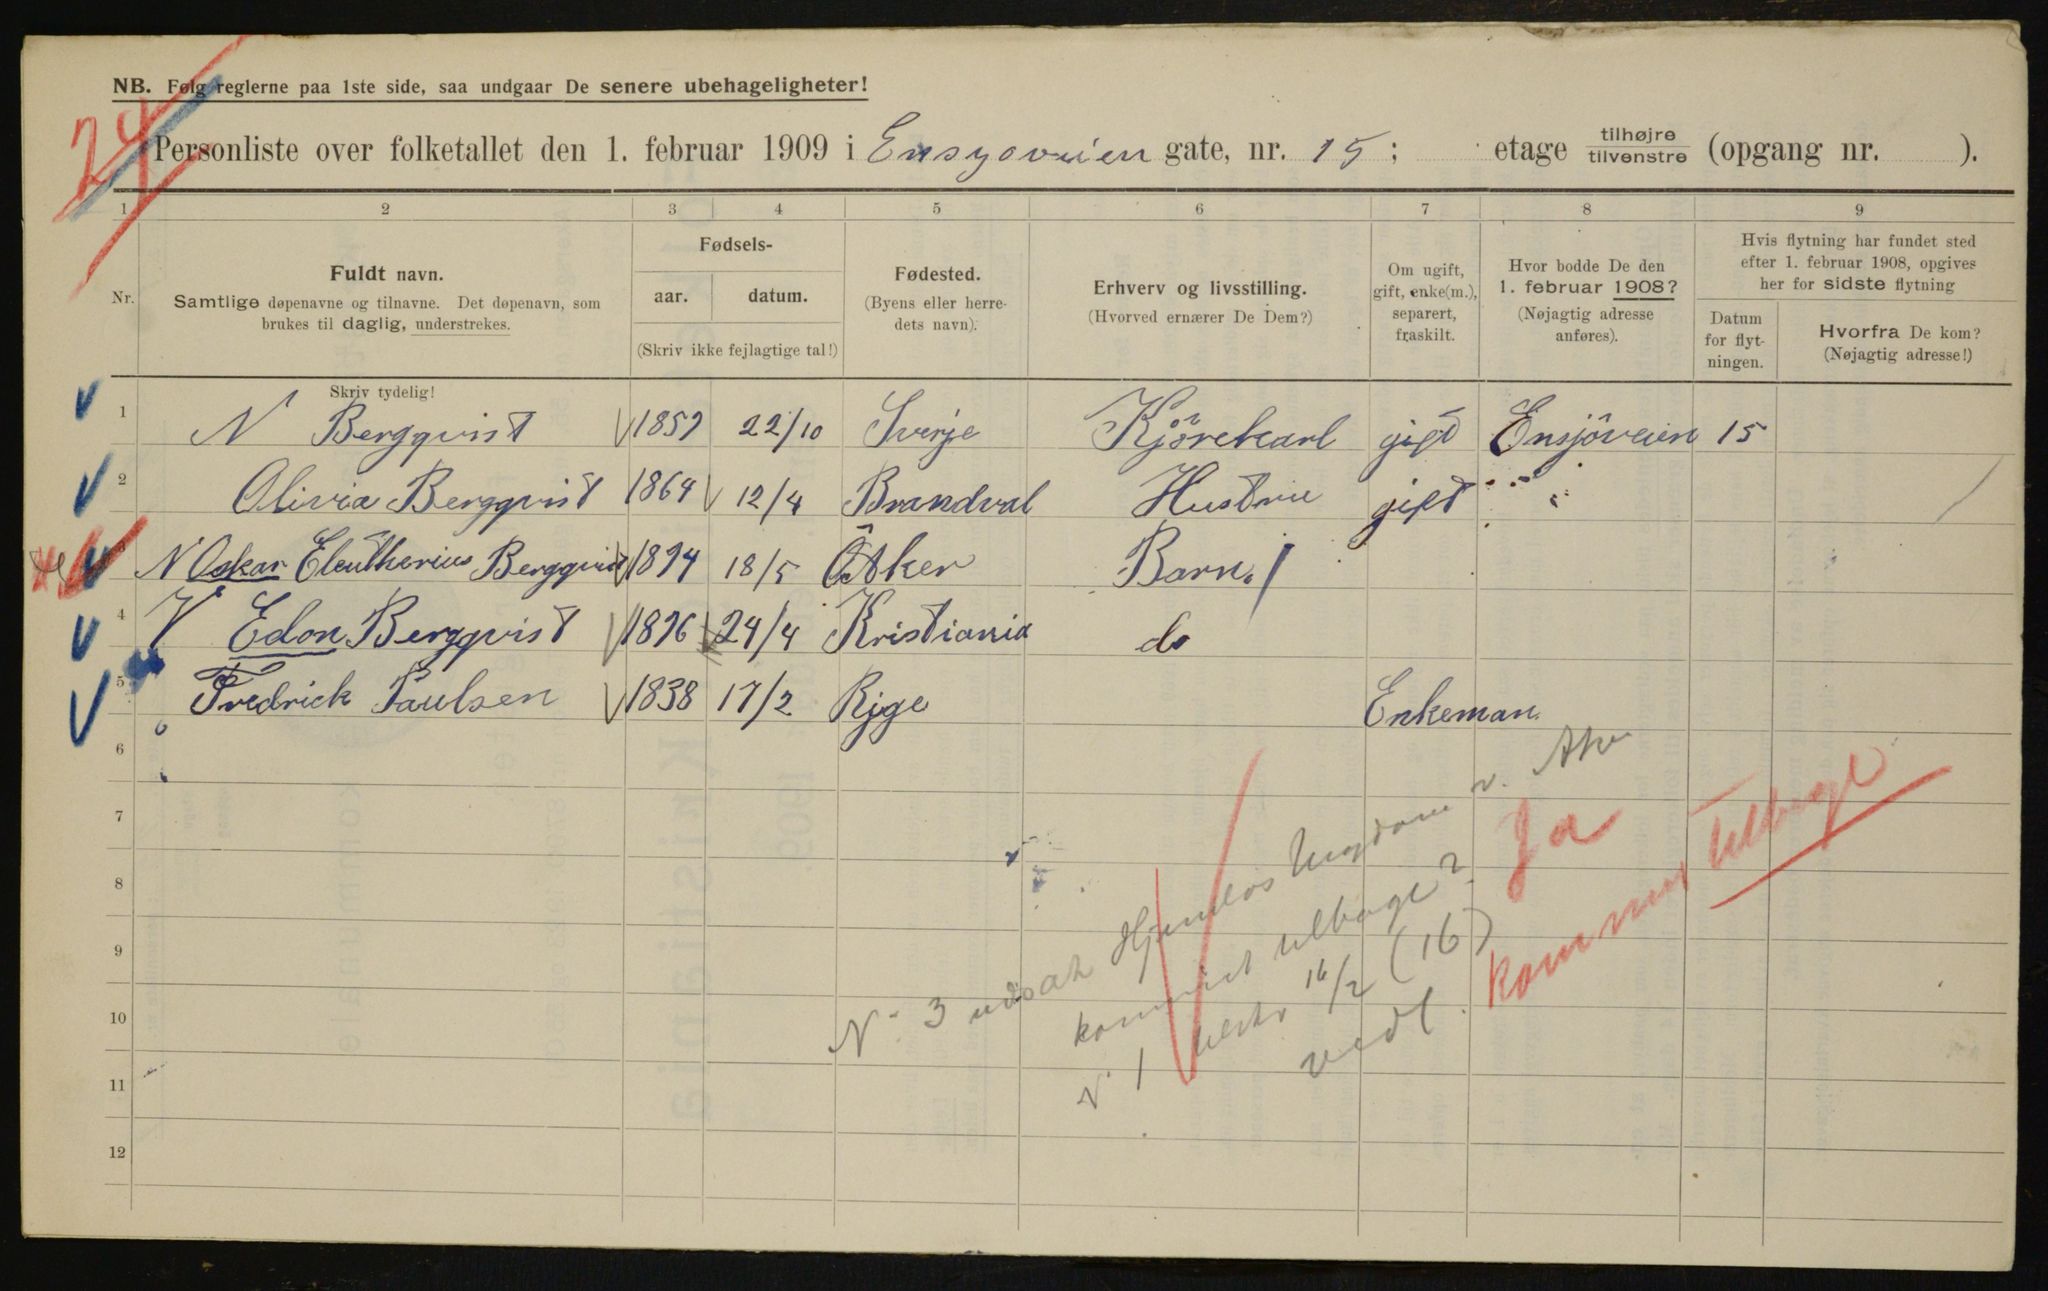 24
NB. Følg reglerne paa 1ste side, saa undgaar De senere ubehageligheter!
Personliste over folketallet den 1. februar 1909 i Ensyoveien gate, nr. 15; etage tilhøjre tilvenstre (opgang nr. ).
1 2 3 4 5 6 7 8 9
Nr.
Fuldt navn.
Samtlige døpenavne og tilnavne. Det døpenavn, som
brukes til daglig, understrekes.
Skriv tydelig!
Fødsels-
aar. datum.
(Skriv ikke fejlagtige tal!)
Fødested.
(Byens eller herre-
dets navn).
Erhverv og livsstilling.
(Hvorved ernærer De Dem?)
Om ugift,
gift, enke(m.),
separert,
fraskilt.
Hvor bodde De den
1. februar 1908?
(Nøjagtig adresse
anføres).
Hvis flytning har fundet sted
efter 1. februar 1908, opgives
her for sidste flytning
Datum
for flyt-
ningen.
Hvorfra De kom?
(Nøjagtig adresse!)
1 N Bergqvist 1857 22/10 Sverje Kjörekarl gift Ensjöveien 15
2 Olivia Bergqvist 1864 12/4 Brandval Hustru gift " "
3 N Oskar Eleutherius Bergqvist 1894 18/5 Ö Aker Barn
4 Edon Bergqvist 1896 24/4 Kristiania do
5 Fredrick Paulsen 1838 17/2 Ryge Enkeman
6
7
8
9
10
11
12
N 3 udsat Hjemløs Ungdom v. Aker
kommet tilbage?
N 1 16/2 (16)
vedl.
Ja
kommet tilbage